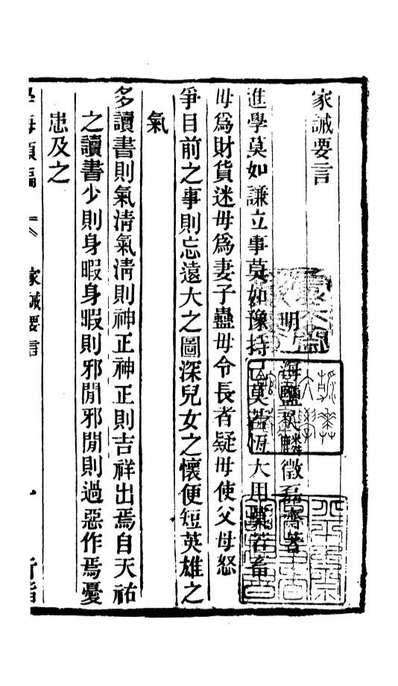 家誡要言
明 海鹽吳麟徵磊齋著
進學莫如謙立事莫如豫持己莫若恆大用莫若畜
毋為財貨迷毋為妻子蠱毋令長者疑毋使父母怒
爭目前之事則忘遠大之圖深兒女之懷便短英雄之
氣
多讀書則氣清氣清則神正神正則吉祥出焉自天祐
之讀書少則身暇身暇則邪閒邪閒則過惡作焉憂
患及之
學海類編 家誡要言 一